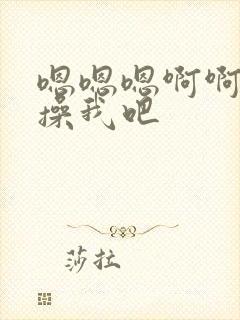 嗯嗯嗯啊啊
操我吧
莎拉